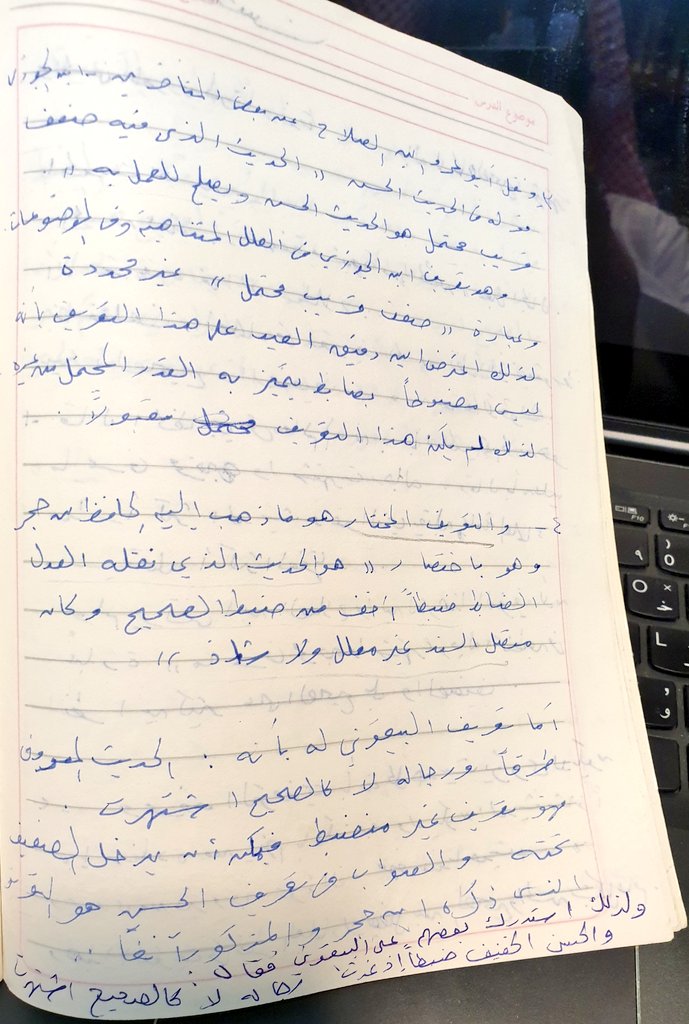 موضوع الدرس
٣- ونقل أبو عمرو ابن الصلاح عن بعض المتأخرين - ابن الجوزي
قوله في الحديث الحسن " الحديث الذي فيه ضعف
قريب محتمل هو الحديث الحسن ويصلح للعمل به "
وهو تعريف ابن الجوزي في العلل المتناهية وفي الموضوعات
وعبارة " ضعف قريب محتمل " غير محددة
لذلك اعترض ابن دقيق العيد على هذا التعريف بأنه
ليس مضبوطاً بضابط يتميز به القدر المحتمل من غيره
لذلك لم يكن هذا التعريف مقبولاً .
٤- والتعريف المختار هو ما ذهب إليه الحافظ ابن حجر
وهو باختصار " هو الحديث الذي نقله العدل
الضابط ضبطاً أخف من ضبط الصحيح وكان
متصل السند غير معلل ولا شاذ "
أما تعريف البيقوني له بأنه : الحديث المعروف
طرقاً ورجاله لا كالصحيح اشتهرت .
فهو تعريف غير منضبط فيمكن أن يدخل الضعيف
تحته والصواب في تعريف الحسن هو
الذي ذكره ابن حجر والمذكور آنفاً ..
ولذلك استدرك بعضهم على البيقوني فقال :
والحسن الخفيف ضبطاً إذ غدت رجاله لا كالصحيح اشتهرت